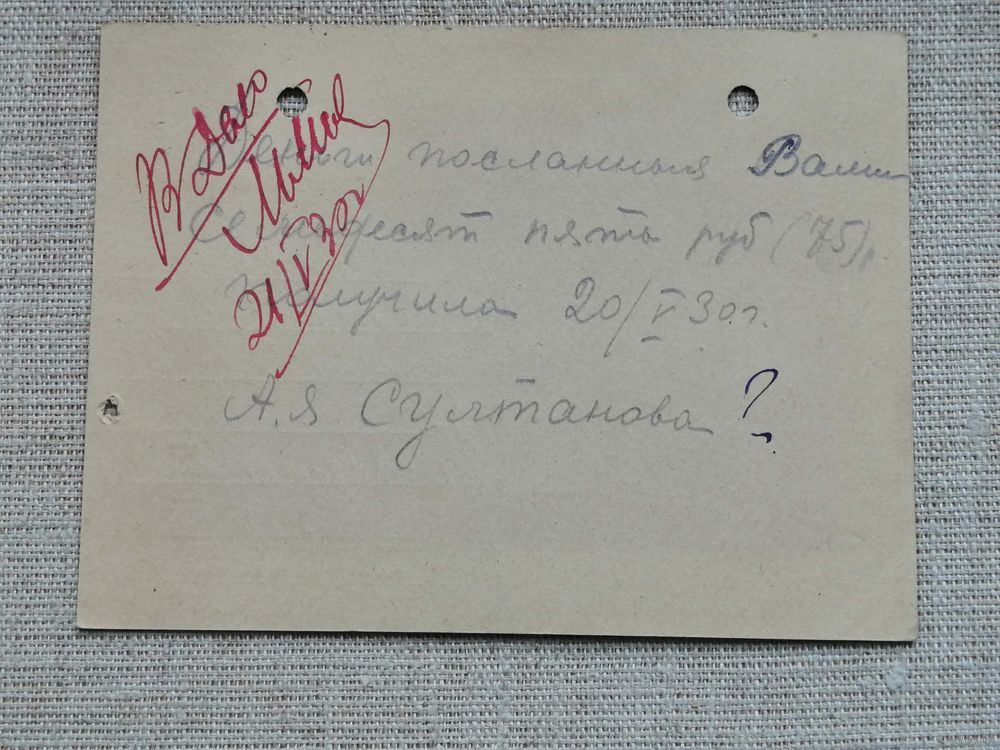 В дело
21/V 30г
Деньги посланныя Вами
Семьдесят пять руб (75)р.
получила 20/V 30 г.
А.Я Султанова ?